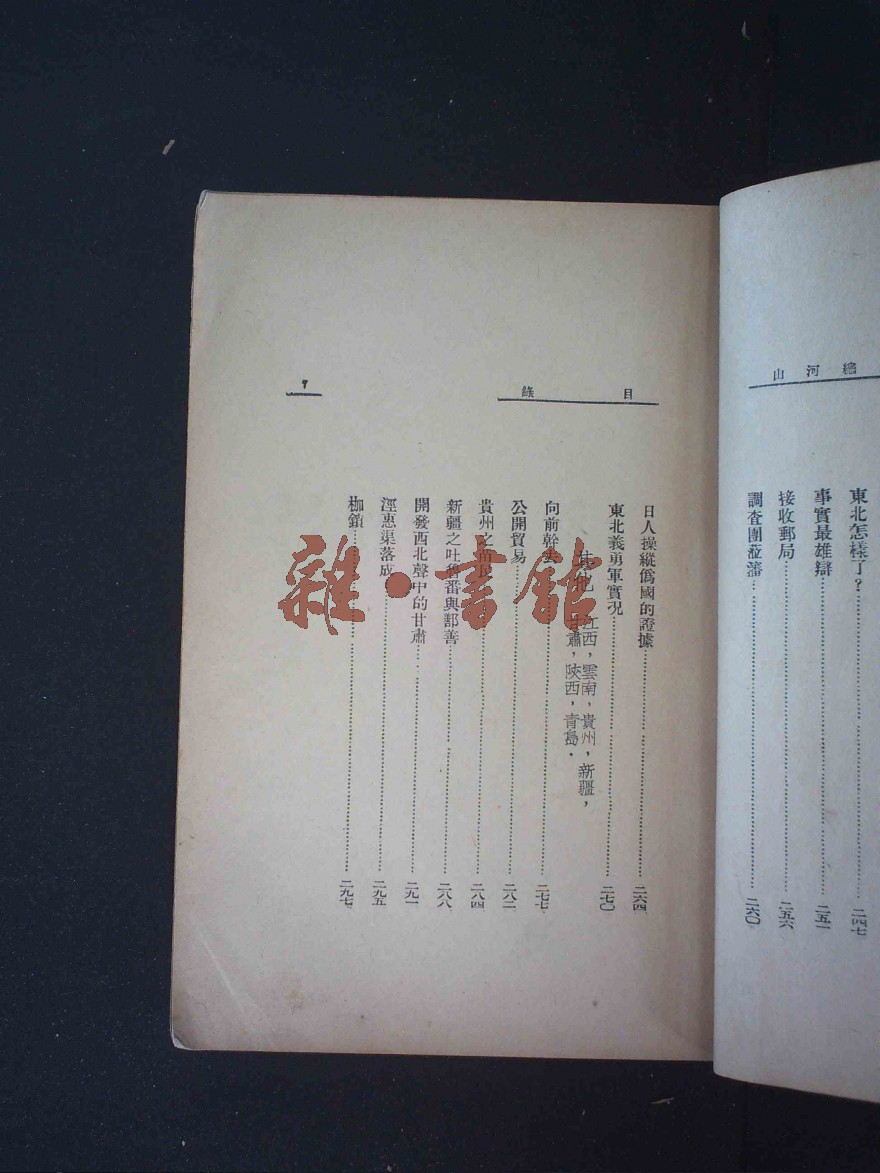 山河繪
東北怎樣了？……二四七
事實最雄辯……二五一
接收郵局……二五六
調查團蒞瀋……二六〇
目錄
7
日人操縱僞國的證據……二六四
東北義勇軍實況……二七〇
其他 江西，雲南，貴州，新疆，
甘肅，陝西，青島．
向前幹去……二七七
公開貿易……二八二
貴州之苗民……二八四
新疆之吐魯番與鄯善……二八八
開發西北聲中的甘肅……二九一
涇惠渠落成……二九五
枷鎖……二九七
雜·書館